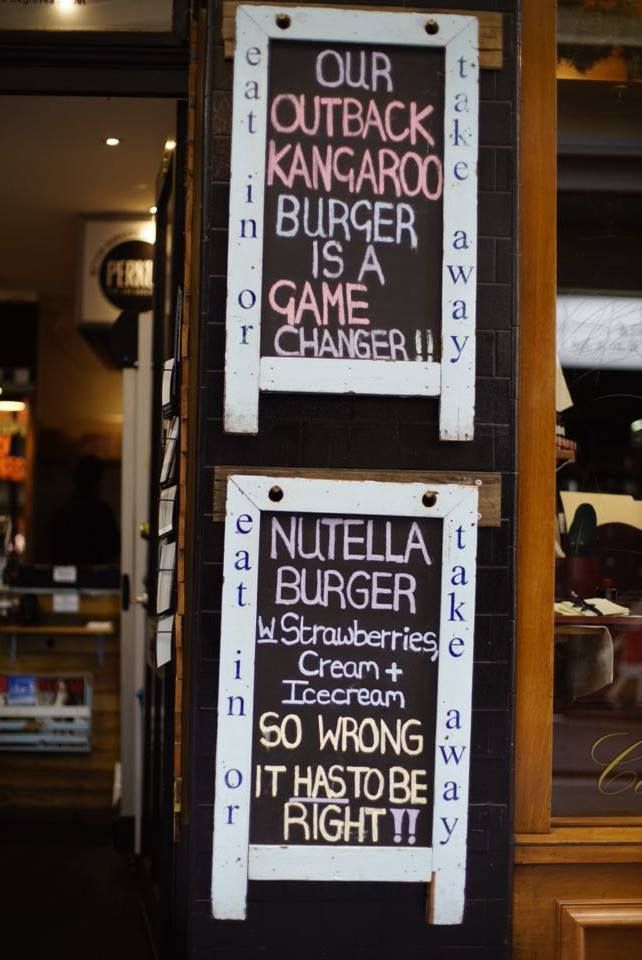 eat in or
take away
OUR
OUTBACK
KANGAROO
BURGER
IS A
GAME
CHANGER!!
eat in or
take away
NUTELLA
BURGER
W Strawberries,
Cream +
Icecream
SO WRONG
IT HAS TO BE
RIGHT!!